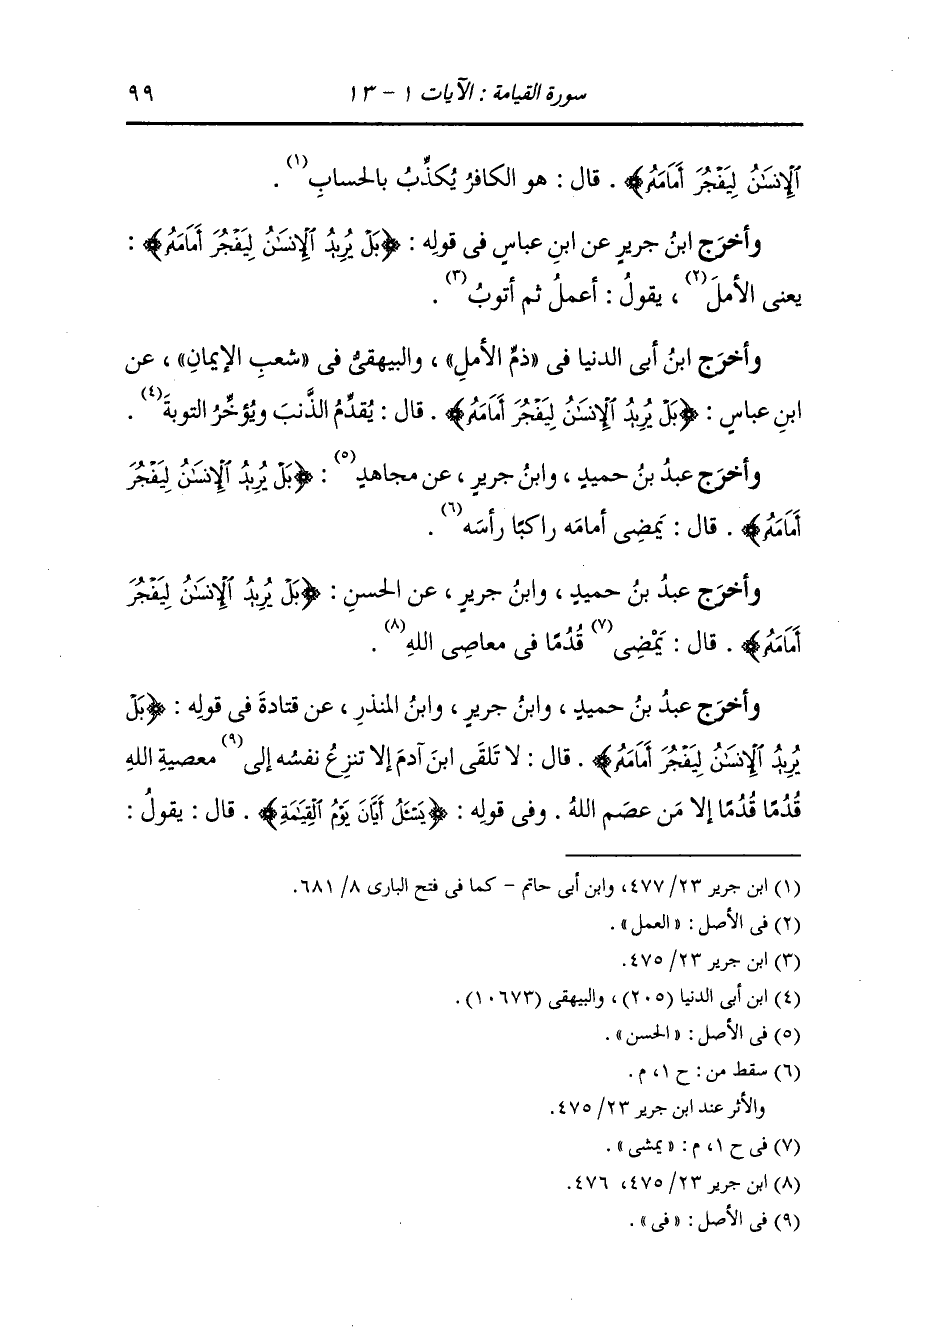 سورة القيامة : الآيات ١ - ١٣ ٩٩
ٱلْإِنسَٰنُ لِيَفْجُرَ أَمَامَهُۥ﴾ . قال : هو الكافرُ يُكذِّبُ بالحسابِ(١) .
وأخرَج ابنُ جريرٍ عن ابنِ عباسٍ فى قولِه : ﴿بَلْ يُرِيدُ ٱلْإِنسَٰنُ لِيَفْجُرَ أَمَامَهُۥ﴾ :
يعنى الأملَ(٢) ، يقولُ : أعملُ ثم أتوبُ(٣) .
وأخرَج ابنُ أبى الدنيا فى «ذمِّ الأملِ» ، والبيهقىُّ فى «شعبِ الإيمانِ» ، عن
ابنِ عباسٍ : ﴿بَلْ يُرِيدُ ٱلْإِنسَٰنُ لِيَفْجُرَ أَمَامَهُۥ﴾ . قال : يُقدِّمُ الذَّنبَ ويُؤخِّرُ التوبةَ(٤) .
وأخرَج عبدُ بنُ حميدٍ ، وابنُ جريرٍ ، عن مجاهدٍ(٥) : ﴿بَلْ يُرِيدُ ٱلْإِنسَٰنُ لِيَفْجُرَ
أَمَامَهُۥ﴾ . قال : يَمضِى أمامَه راكبًا رأسَه(٦) .
وأخرَج عبدُ بنُ حميدٍ ، وابنُ جريرٍ ، عن الحسنِ : ﴿بَلْ يُرِيدُ ٱلْإِنسَٰنُ لِيَفْجُرَ
أَمَامَهُۥ﴾ . قال : يَمْضِى(٧) قُدُمًا فى معاصِى اللهِ(٨) .
وأخرَج عبدُ بنُ حميدٍ ، وابنُ جريرٍ ، وابنُ المنذرِ ، عن قتادةَ فى قولِه : ﴿بَلْ
يُرِيدُ ٱلْإِنسَٰنُ لِيَفْجُرَ أَمَامَهُۥ﴾ . قال : لا تَلقَى ابنَ آدمَ إلا تنزِعُ نفسُه إلى(٩) معصيةِ اللهِ
قُدُمًا قُدُمًا إلا مَن عصَم اللهُ . وفى قولِه : ﴿يَسْـَٔلُ أَيَّانَ يَوْمُ ٱلْقِيَٰمَةِ﴾ . قال : يقولُ :
(١) ابن جرير ٢٣/ ٤٧٧، وابن أبى حاتم - كما فى فتح البارى ٨/ ٦٨١.
(٢) فى الأصل : «العمل» .
(٣) ابن جرير ٢٣/ ٤٧٥.
(٤) ابن أبى الدنيا (٢٠٥) ، والبيهقى (١٠٦٧٣) .
(٥) فى الأصل : «الحسن» .
(٦) سقط من : ح ١، م .
والأثر عند ابن جرير ٢٣/ ٤٧٥.
(٧) فى ح ١، م : «يمشى» .
(٨) ابن جرير ٢٣/ ٤٧٥، ٤٧٦.
(٩) فى الأصل : «فى» .